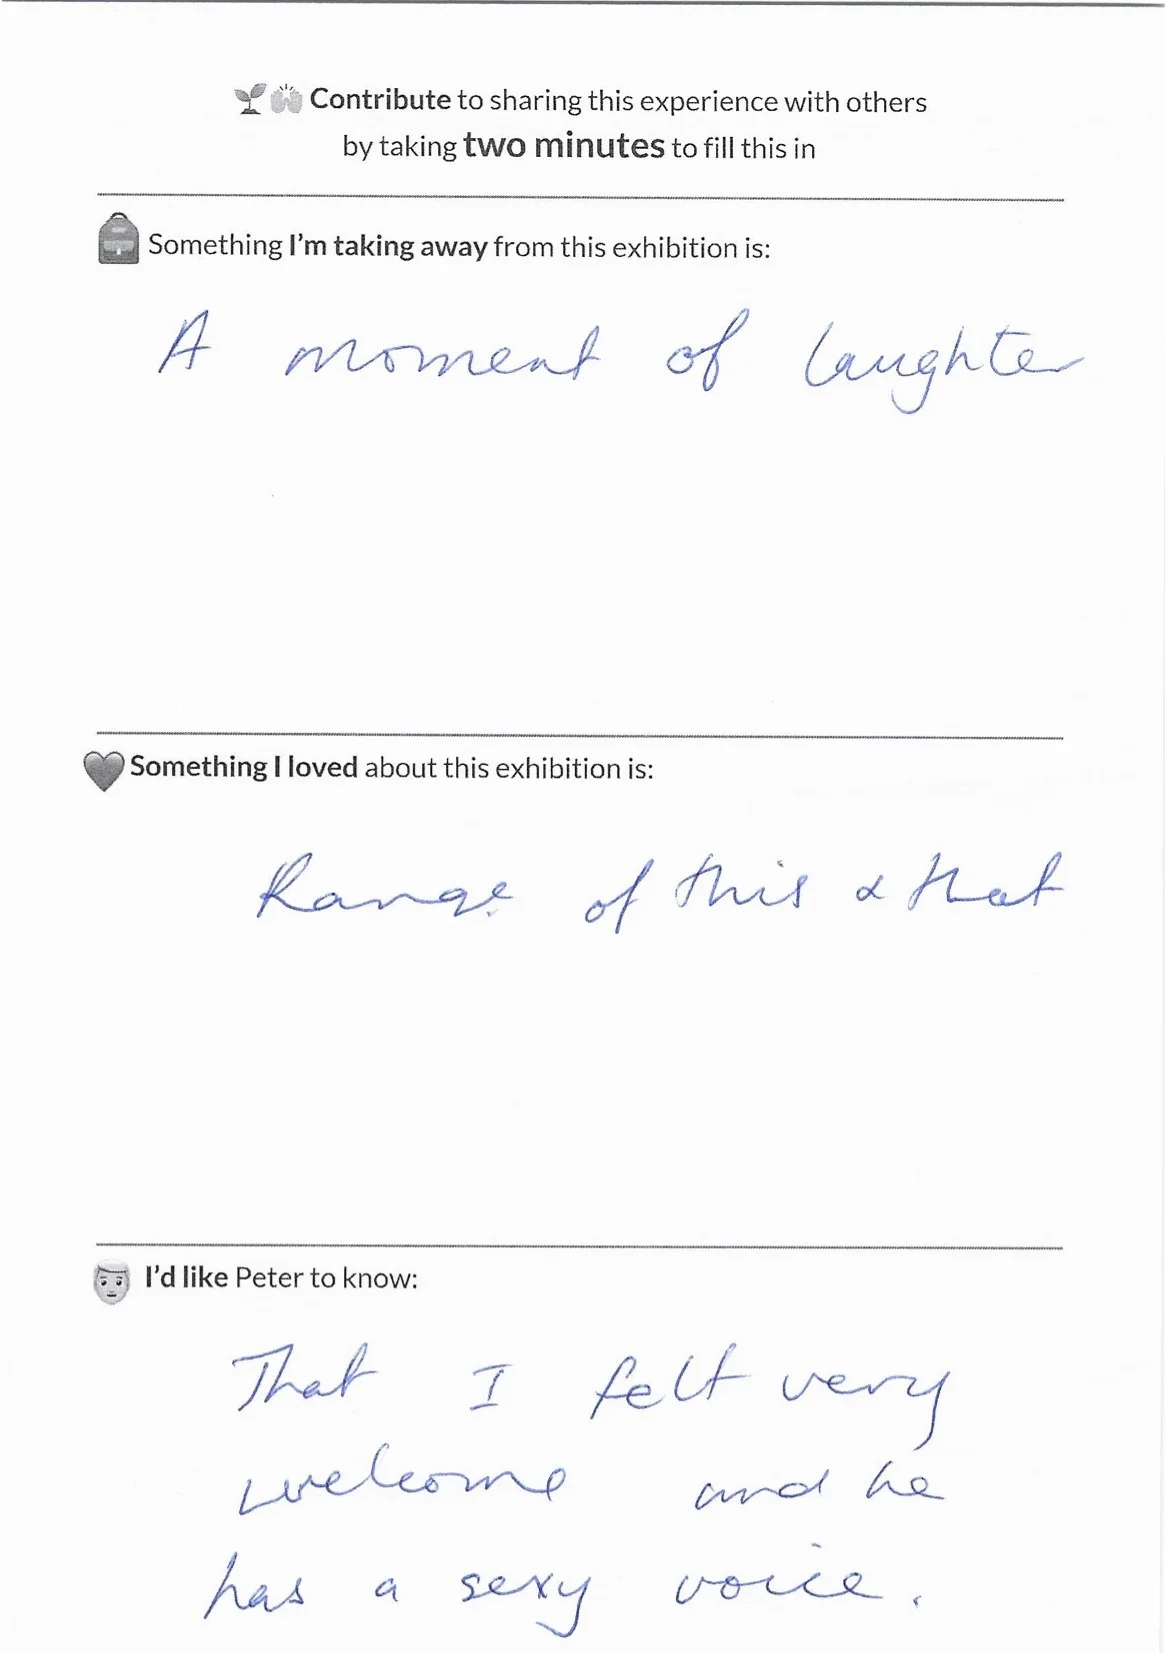 Contribute to sharing this experience with others
by taking two minutes to fill this in
Something I'm taking away from this exhibition is:
A moment of laughter
Something I loved about this exhibition is:
Range of this & that
I'd like Peter to know:
That I felt very
welcome and he
has a sexy voice.